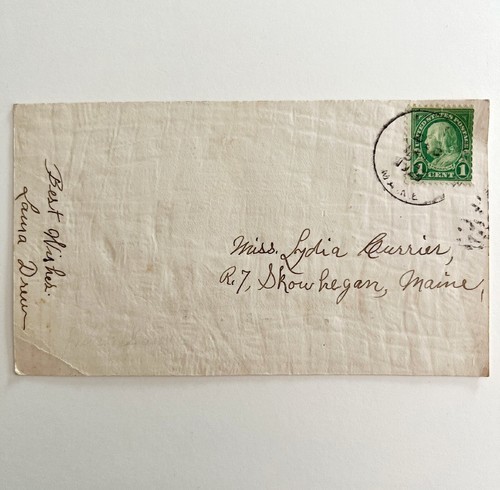 Best Wishes.
Laura Drew
UNITED STATES POSTAGE
1 CENT 1
MAINE
Miss. Lydia Currier,
R.7, Skowhegan, Maine,